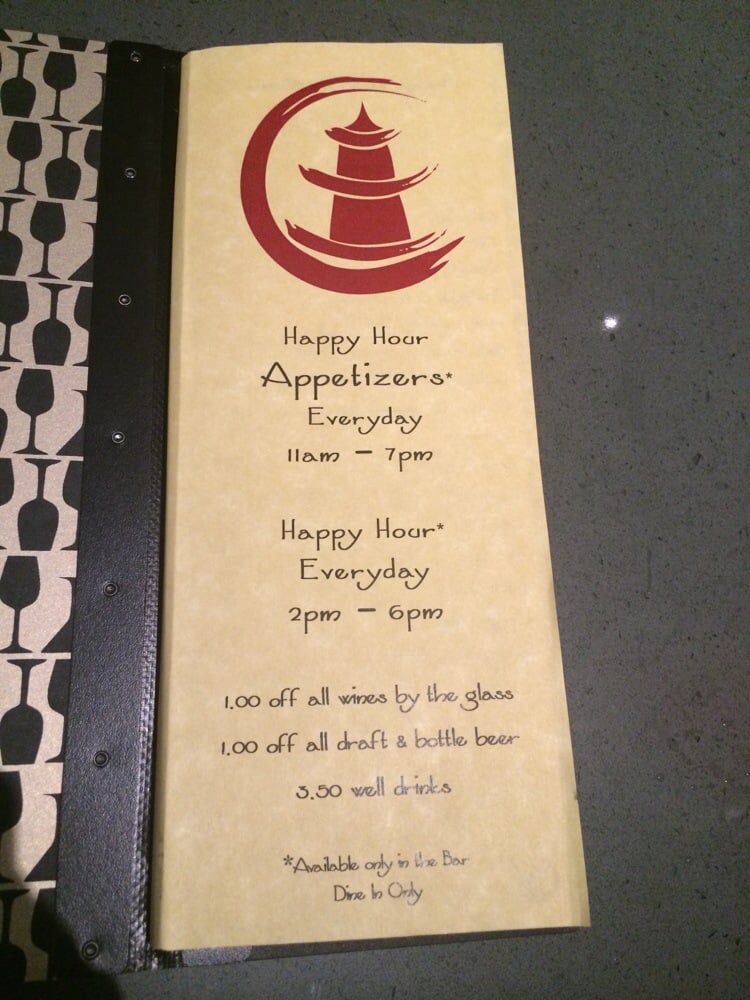 Happy Hour
Appetizers*
Everyday
11am - 7pm
Happy Hour*
Everyday
2pm - 6pm
1.00 off all wines by the glass
1.00 off all draft & bottle beer
3.50 well drinks
*Available only in the Bar
Dine In Only